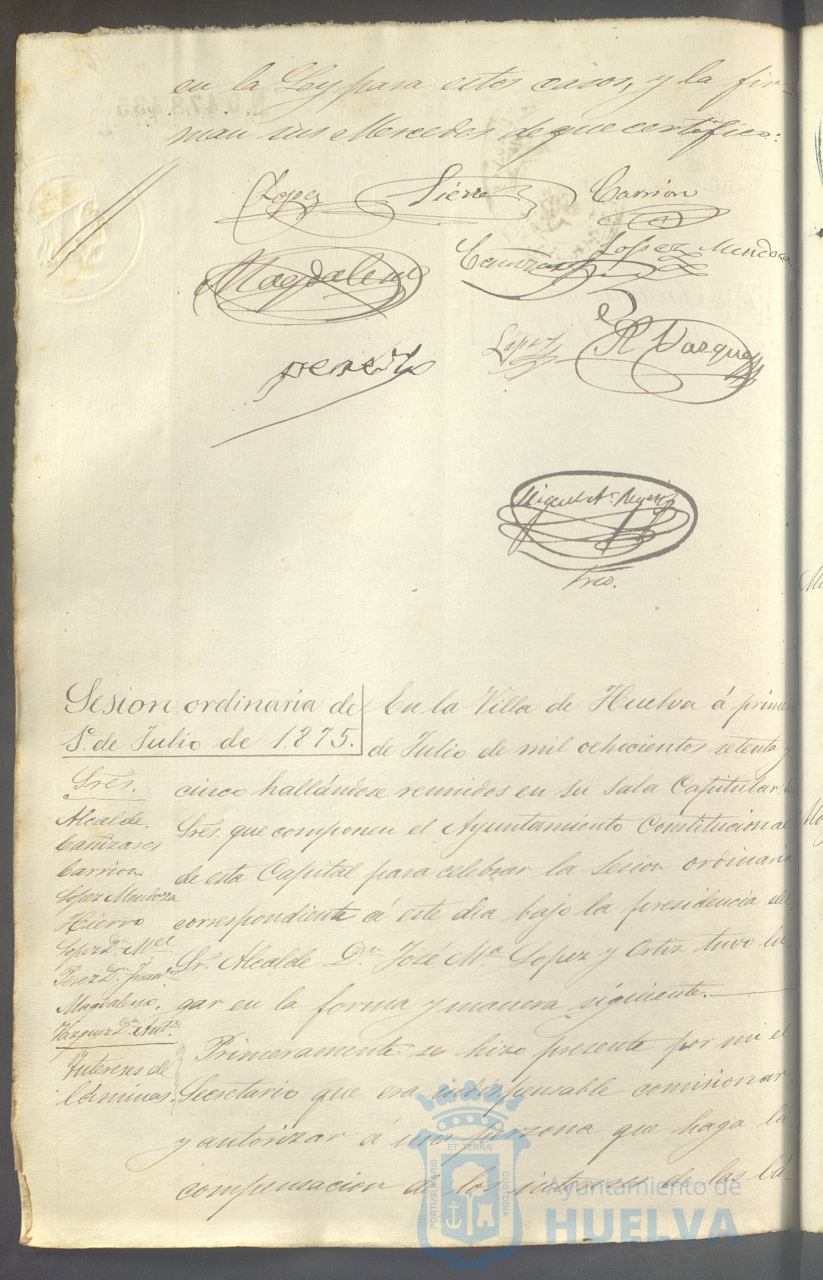 en la Ley para estos casos, y la fir-
man sus Mercedes de que certifico:
Lopez Hierro Carrion
Magdaleno Cañizares Lopez Mendoza
perez Lopez R Vazquez
Srio.
Sesion ordinaria de
1º de Julio de 1.875.
Sres.
Alcalde.
Cañizares
Carrion
Lopez Mendoza
Hierro
Lopez Dn. Mel
Perez Dn. Juan
Magdaleno.
Vazquez Dn. Antº
Intereses de
láminas.
En la Villa de Huelva á primero
de Julio de mil ochocientos setenta y
cinco hallándose reunidos en su Sala Capitular los
Sres. que componen el Ayuntamiento Constitucional
de esta Capital para celebrar la Sesion ordinaria
correspondiente á este dia bajo la presidencia del
Sr. Alcalde Dn. José Mª Lopez y Ortiz tuvo lu-
gar en la forma y manera siguiente.
Primeramente se hizo presente por mi el
Secretario que era indispensable comisionar
y autorizar á una persona que haga la
compensacion de los intereses de las lá-
PORTUS MARIS
ET TERRÆ
CUSTODIA
Ayuntamiento de
HUELVA